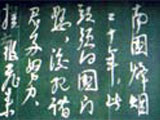 南国烽烟
正十年此
头须向国门
悬后死诸
君多努力
捷报飞来